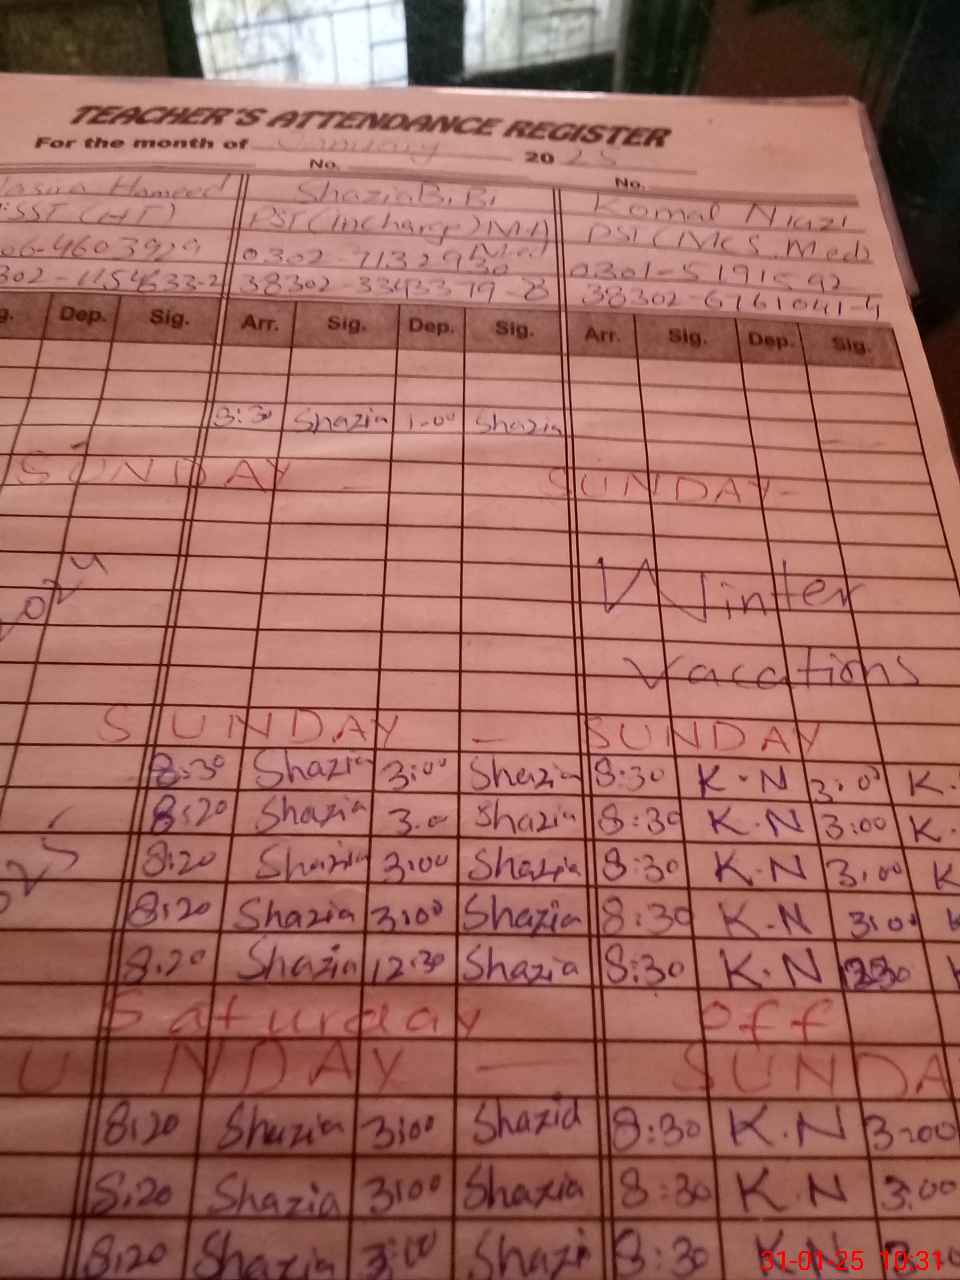 TEACHER'S ATTENDANCE REGISTER
For the month of January 2025
No. No.
Hameed Shazia Bi Bi Komal Niazi
SST (HT) PST (Incharge) MA PST (MCS, M.ed)
06-4603929 M.ed
0302-7132930 0301-5191592
302-1154633-2 38302-3343379-8 38302-6161041-4
g. Dep. Sig. Arr. Sig. Dep. Sig. Arr. Sig. Dep. Sig.
8:30 Shazia 1-00 Shazia
SUNDAY - SUNDAY -
Winter
Vacations
SUNDAY - SUNDAY
8:30 Shazia 3:00 Shazia 8:30 K.N 3:00 K.
8:20 Shazia 3.0 Shazia 8:30 K.N 3:00 K.
8:20 Shazia 3:00 Shazia 8:30 K.N 3:00 K
8:20 Shazia 3:00 Shazia 8:30 K.N 3:00 K
8:20 Shazia 12:30 Shazia 8:30 K.N 1230 K
Saturday off
UNDAY - SUNDA
8:20 Shazia 3:00 Shazia 8:30 K.N 3:00
8:20 Shazia 3:00 Shazia 8:30 K.N 3:00
8:20 Shazia 3:00 Shazi 8:30 K.N
31-01-25 10:31